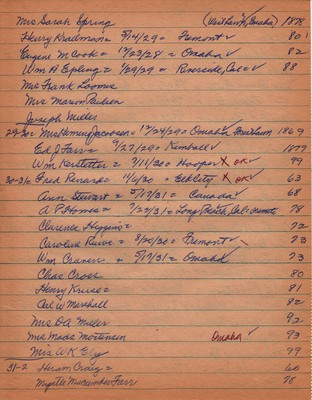 Mrs Sarah Spring (West Lawn, Omaha) ✓ 1878
Henry Krailman = 8/14/29 = Fremont ✓ 80 1
Eugene M Cook = 12/23/28 = Omaha ✓ 82
Wm A Epling = 1/29/29 = Riverside, Cal = ✓ 88
Mrs Frank Loomis
Mrs Mason Paulsen
Joseph Miller
29-30 = Mrs Henning Jacobsen = 12/24/29 = Omaha 1869
Ed J Farr = 9/27/29 = Kimball ✓ 1879
Wm Kerstetter = 7/11/30 = Hooper X OK ✓ 99
30-31 = Fred Renard = 11/6/30 = Elk City X OK ✓ 63
Ann Stewart = 5/17/31 = Canada ✓ 68
A P Howes = 7/27/31 = Long Beach, Cal = 78
Clarence Higgins = 72
Caroline = 8/20/30 = Fremont 73
Wm Craven = 5/17/31 = Omaha ✓ 73
Chas Cross 80
Henry Kruse = 81
Carl W Marshall 82
Mrs OA Miller 92
Mrs Mads Mortensen Omaha ✓ 93
Mrs W K Ely 99
31-2 Hiram Craig = 60
Myrtle Macumber Farr 78